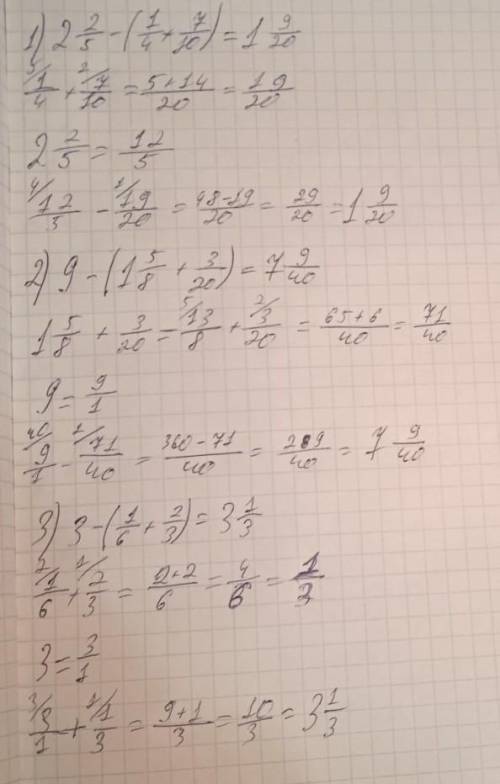 1) 2 2/5 - (1/4 + 7/10) = 1 9/20
5/ 1/4 + 2/ 7/10 = (5+14)/20 = 19/20
2 2/5 = 12/5
4/ 12/5 - 1/ 19/20 = (48-19)/20 = 29/20 = 1 9/20
2) 9 - (1 5/8 + 3/20) = 7 9/40
1 5/8 + 3/20 = 5/ 13/8 + 2/ 3/20 = (65+6)/40 = 71/40
9 = 9/1
40/ 9/1 - 1/ 71/40 = (360-71)/40 = 289/40 = 7 9/40
3) 3 - (1/6 + 2/3) = 3 1/3
1/6 + 2/3 = (2+2)/6 = 4/6 = 1/3
3 = 3/1
3/ 3/1 + 1/ 1/3 = (9+1)/3 = 10/3 = 3 1/3